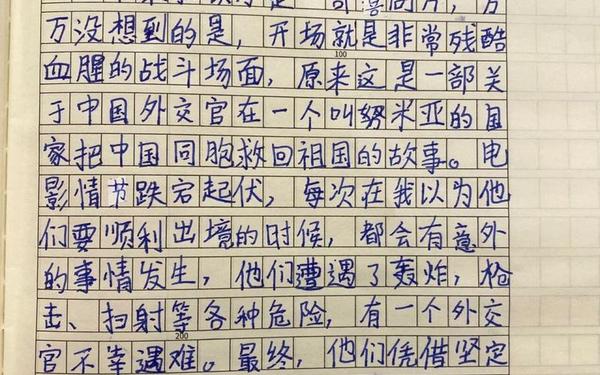 万没想到的是，开场就是非常残酷
100
血腥的战斗场面，原来这是一部关
于中国外交官在一个叫努米亚的国
家把中国同胞救回祖国的故事。电
影情节跌宕起伏，每次在我以为他
们要顺利出境的时候，都会有意外
的事情发生，他们遭遇了轰炸，枪
击、扫射等各种危险，有一个外交
200
官不幸遇难。最终，他们凭借坚定